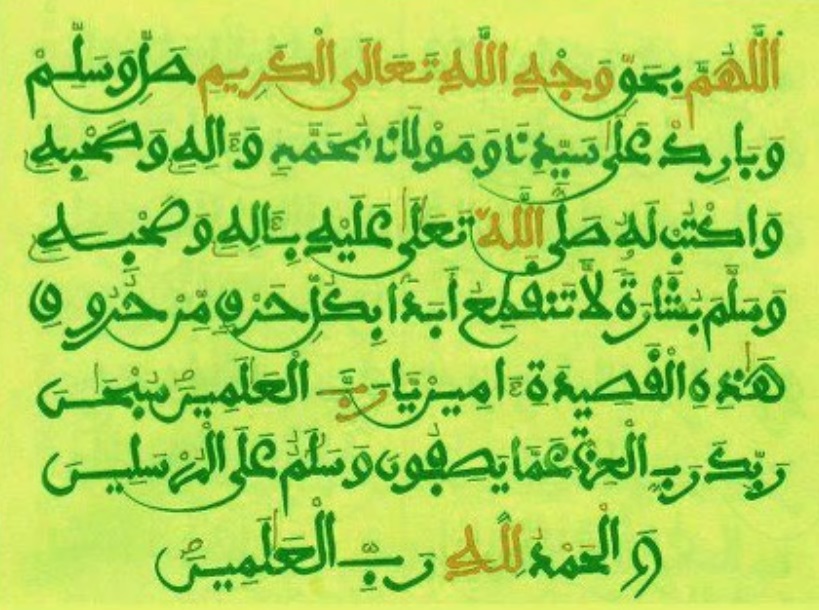 اَللَّهُمَّ بِحَقِّ وَجْهِ اللَّهِ تَعَالَى الْكَرِيمِ صَلِّ وَسَلِّمْ
وَبَارِكْ عَلَى سَيِّدِنَا وَمَوْلَانَا مُحَمَّدٍ وَءَالِهِ وَصَحْبِهِ
وَاكْتُبْ لَهُ صَلَّى اللَّهُ تَعَلَى عَلَيْهِ بِـَٔالِهِ وَصَحْبِهِ
وَسَلَّمَ بَشَارَةً لَّا تَنقَطِعُ أَبَدًا بِكُلِّ حَرْفٍ مِّنْ حُرُوفِ
هَٰذِهِ الْقَصِيدَةِ ءَامِينَ يَا رَبَّ الْعَٰلَمِينَ سُبْحَٰنَ
رَبِّكَ رَبِّ الْعِزَّةِ عَمَّا يَصِفُونَ وَسَلَٰمٌ عَلَى الْمُرْسَلِينَ
وَالْحَمْدُ لِلَّهِ رَبِّ الْعَٰلَمِينَ